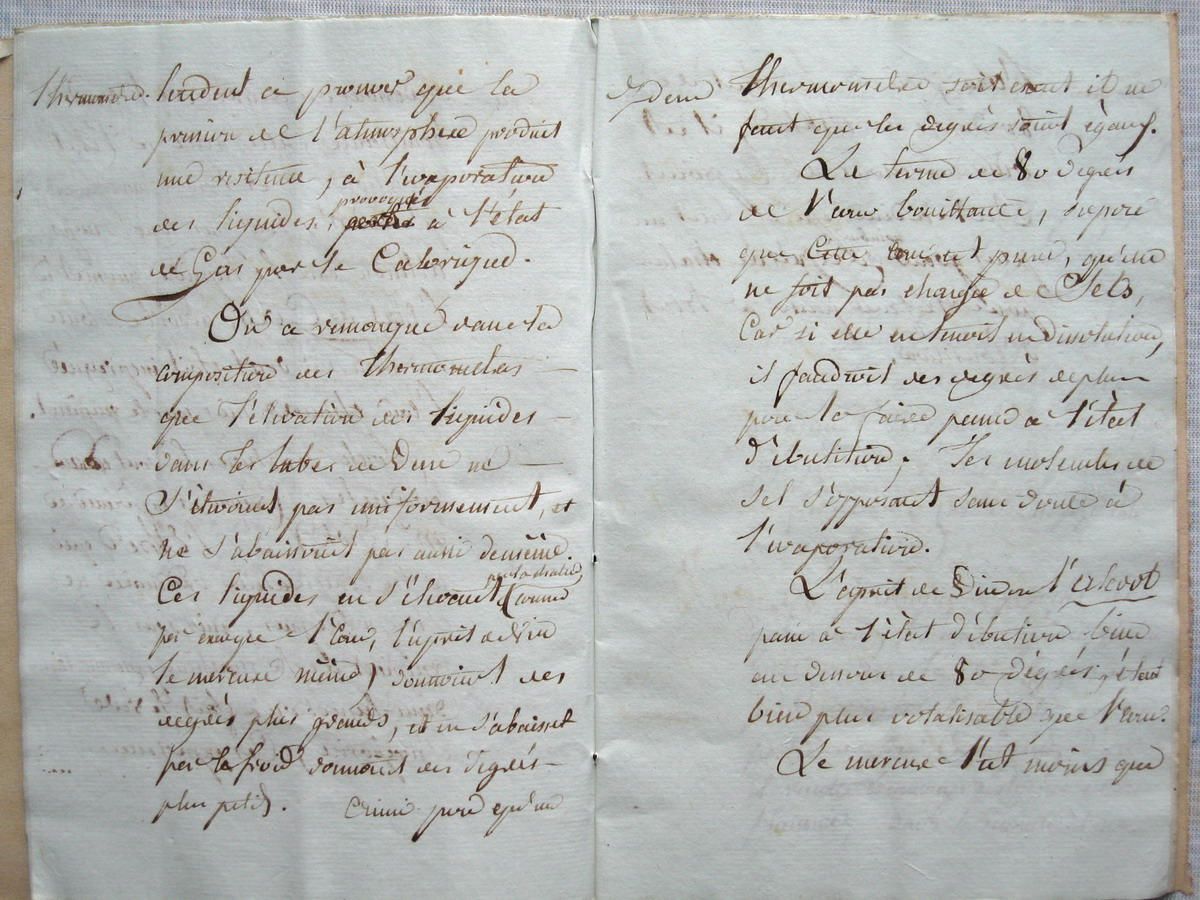 thermometre. tendent a prouver que la
pression de l'atmosphere produit
une resistance, à l'evaporation
provoquée
des liquides, à l'état
de Gas par le Calorique.
On a remarqué dans la
composition des thermometres
que l'élévation des liquides
dans les tubes de Verre ne
S'étendoient pas uniformement, et
ne S'abaissoient pas aussi de même.
par la chaleur
Ces liquides en S'élevant (comme
par exemple l'eau, l'esprit de Vin
le mercure même) donnoient des
degrés plus grands, et en S'abaissant
par le froid donnoient des degrés
plus petits. Ainsi pour qu'un
Idem thermometre soit exact il ne
faut que les degrés soient égaux.
Le terme de 80 degrés
de l'eau bouillante, suposé
que cette eau est pure, qu'elle
ne soit pas chargée de Sels,
Car si elle en tenoit en dissolution,
il faudroit des degrés de plus
pour la faire passer a l'état
d'ébulition. Les molecules de
sel s'opposant sans doute à
l'evaporation.
L'esprit de Vin ou l'alcool
passe a l'état d'ébulition bien
au dessous de 80 dégrés, étant
bien plus volatilisable que l'eau.
Le mercure l'est moins que